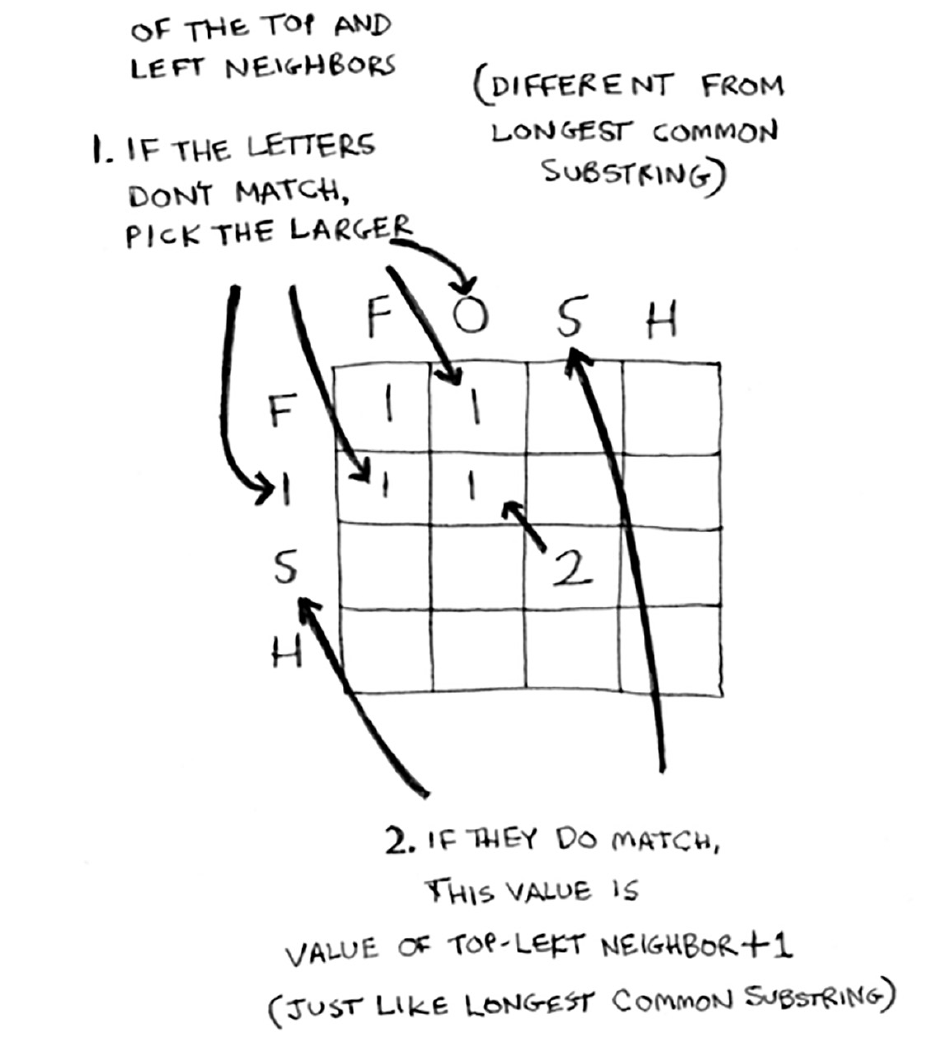 OF THE TOP AND
LEFT NEIGHBORS
(DIFFERENT FROM
LONGEST COMMON
SUBSTRING)
1. IF THE LETTERS
DON'T MATCH,
PICK THE LARGER
F O S H
F 1 1
I 1 1
S 2
H
2. IF THEY DO MATCH,
THIS VALUE IS
VALUE OF TOP-LEFT NEIGHBOR+1
(JUST LIKE LONGEST COMMON SUBSTRING)